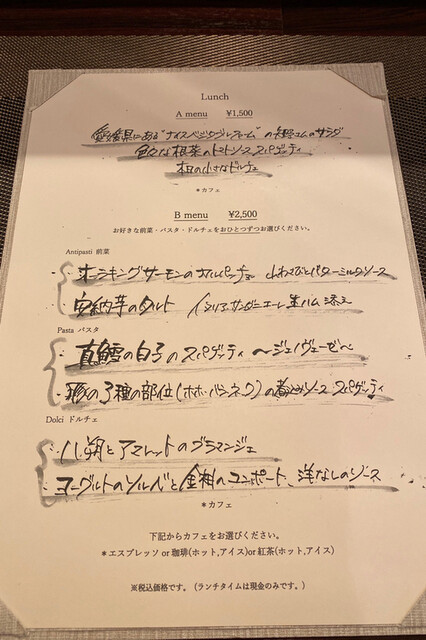 Lunch
A menu ¥1,500
愛媛県にある"ナイスベジタブルファーム"の矢野さんのサラダ
色々な根菜のトマトソース スパゲッティ
本日の小さなドルチェ
*カフェ
B menu ¥2,500
お好きな前菜・パスタ・ドルチェをおひとつずつお選びください。
Antipasti 前菜
・オーラキングサーモンのカルパッチョ 山わさびとバターミルクソース
・安納芋のタルト イタリア サンダニエーレ生ハム添え
Pasta パスタ
・真鱈の白子のスパゲッティ 〜ジェノヴェーゼ〜
・豚の3種の部位(ホホ・バラ・ネック)の煮込みソース スパゲッティ
Dolci ドルチェ
・八朔とアマレットのブラマンジェ
・ヨーグルトのソルベと金柑のコンポート、洋なしのソース
*カフェ
下記からカフェをお選びください。
*エスプレッソ or 珈琲(ホット,アイス)or 紅茶(ホット,アイス)
※税込価格です。(ランチタイムは現金のみです。)